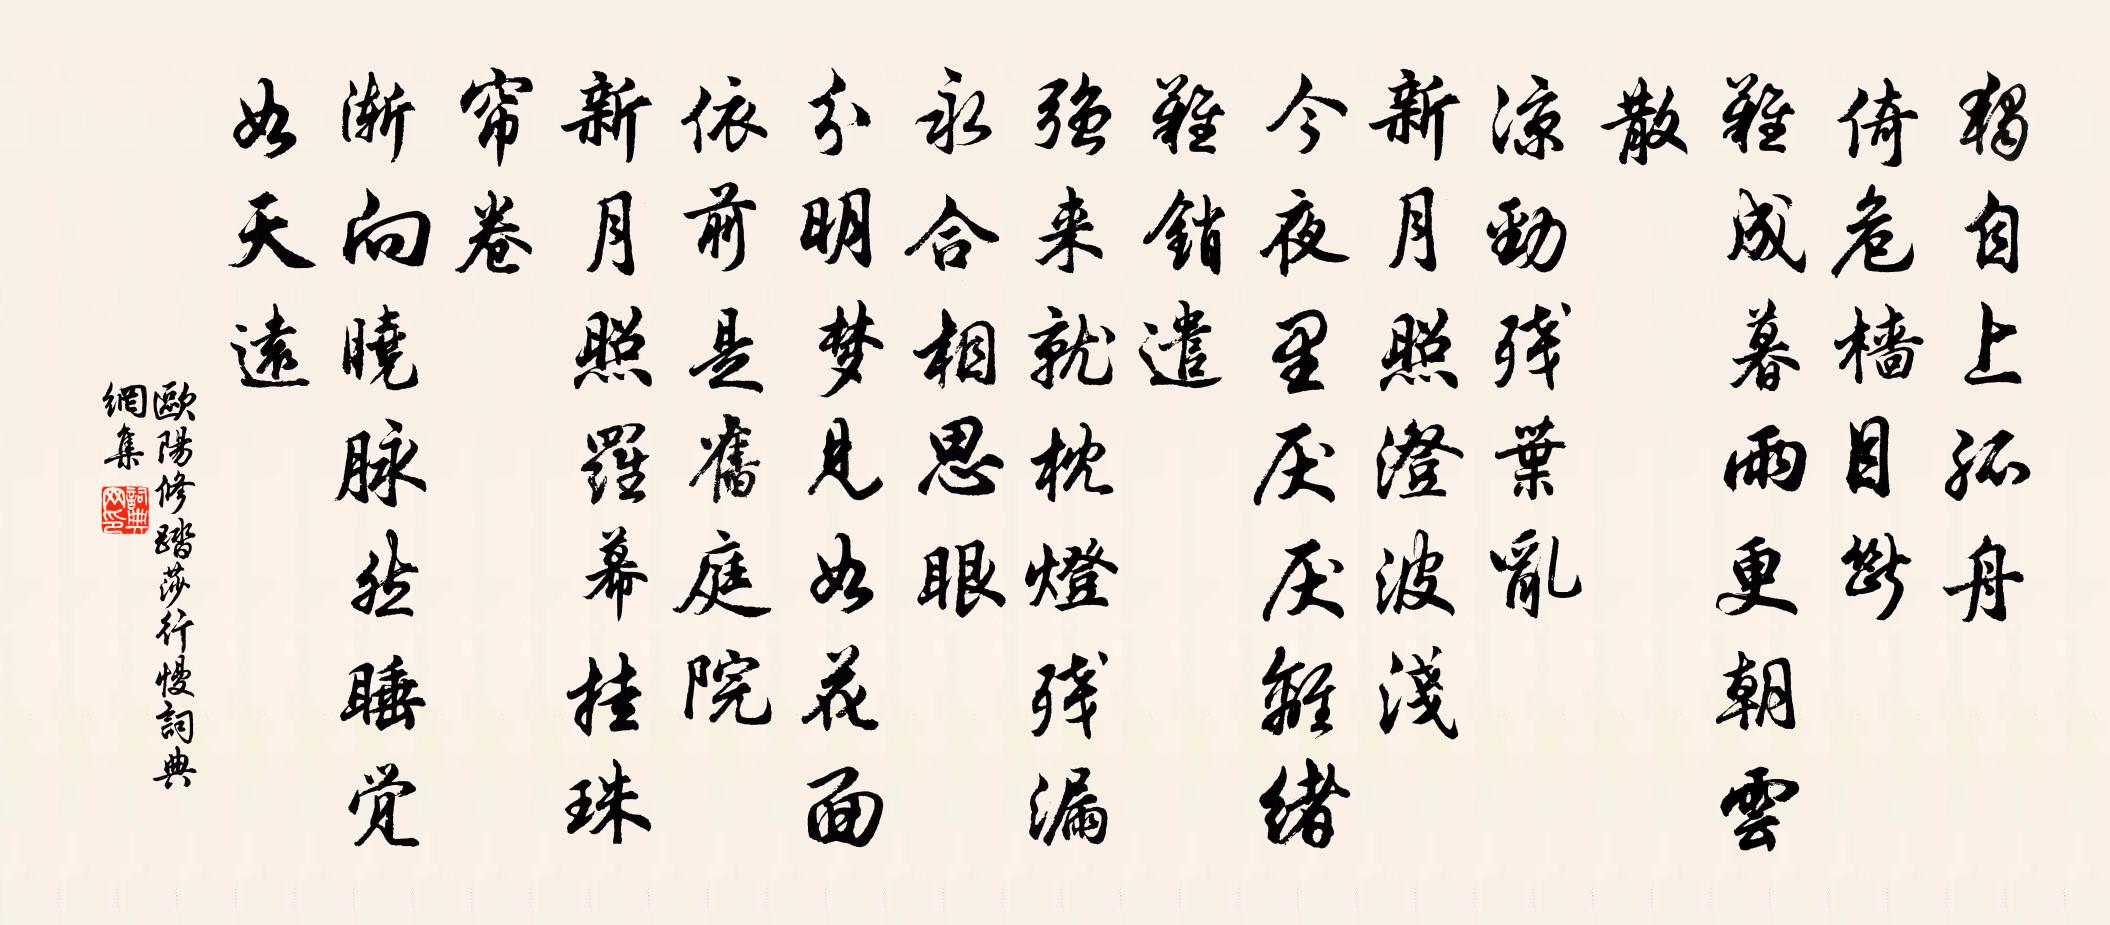 獨自上孤舟
倚危檣目斷
難成暮雨更朝雲
散
涼勁殘葉亂
新月照澄波淺
今夜里厌厌離緒
難銷遣
強来就枕燈殘漏
永合相思眼
分明梦見如花面
依前是舊庭院
新月照羅幕挂珠
帘卷
漸向曉脉然睡觉
如天遠
歐陽修踏莎行慢詞典
網集
詞典
网印